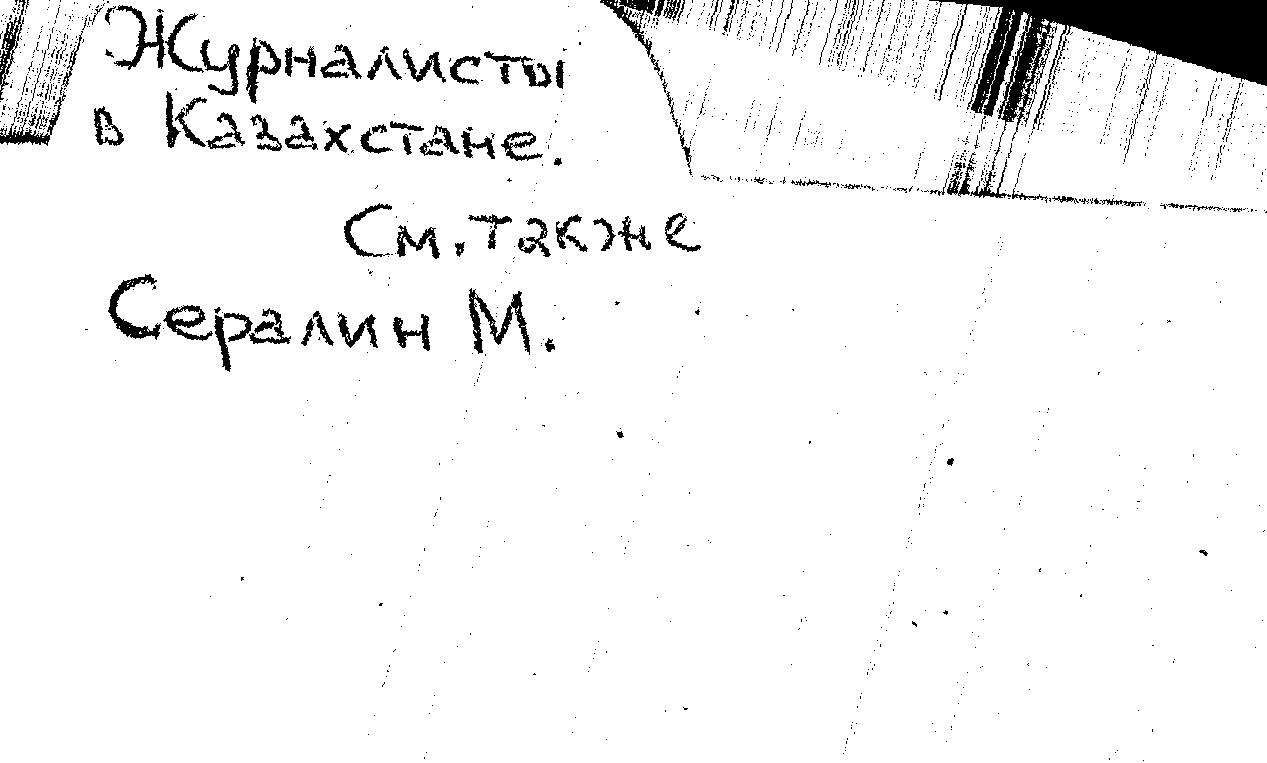 Журналисты
в Казахстане.
См. также
Сералин М.